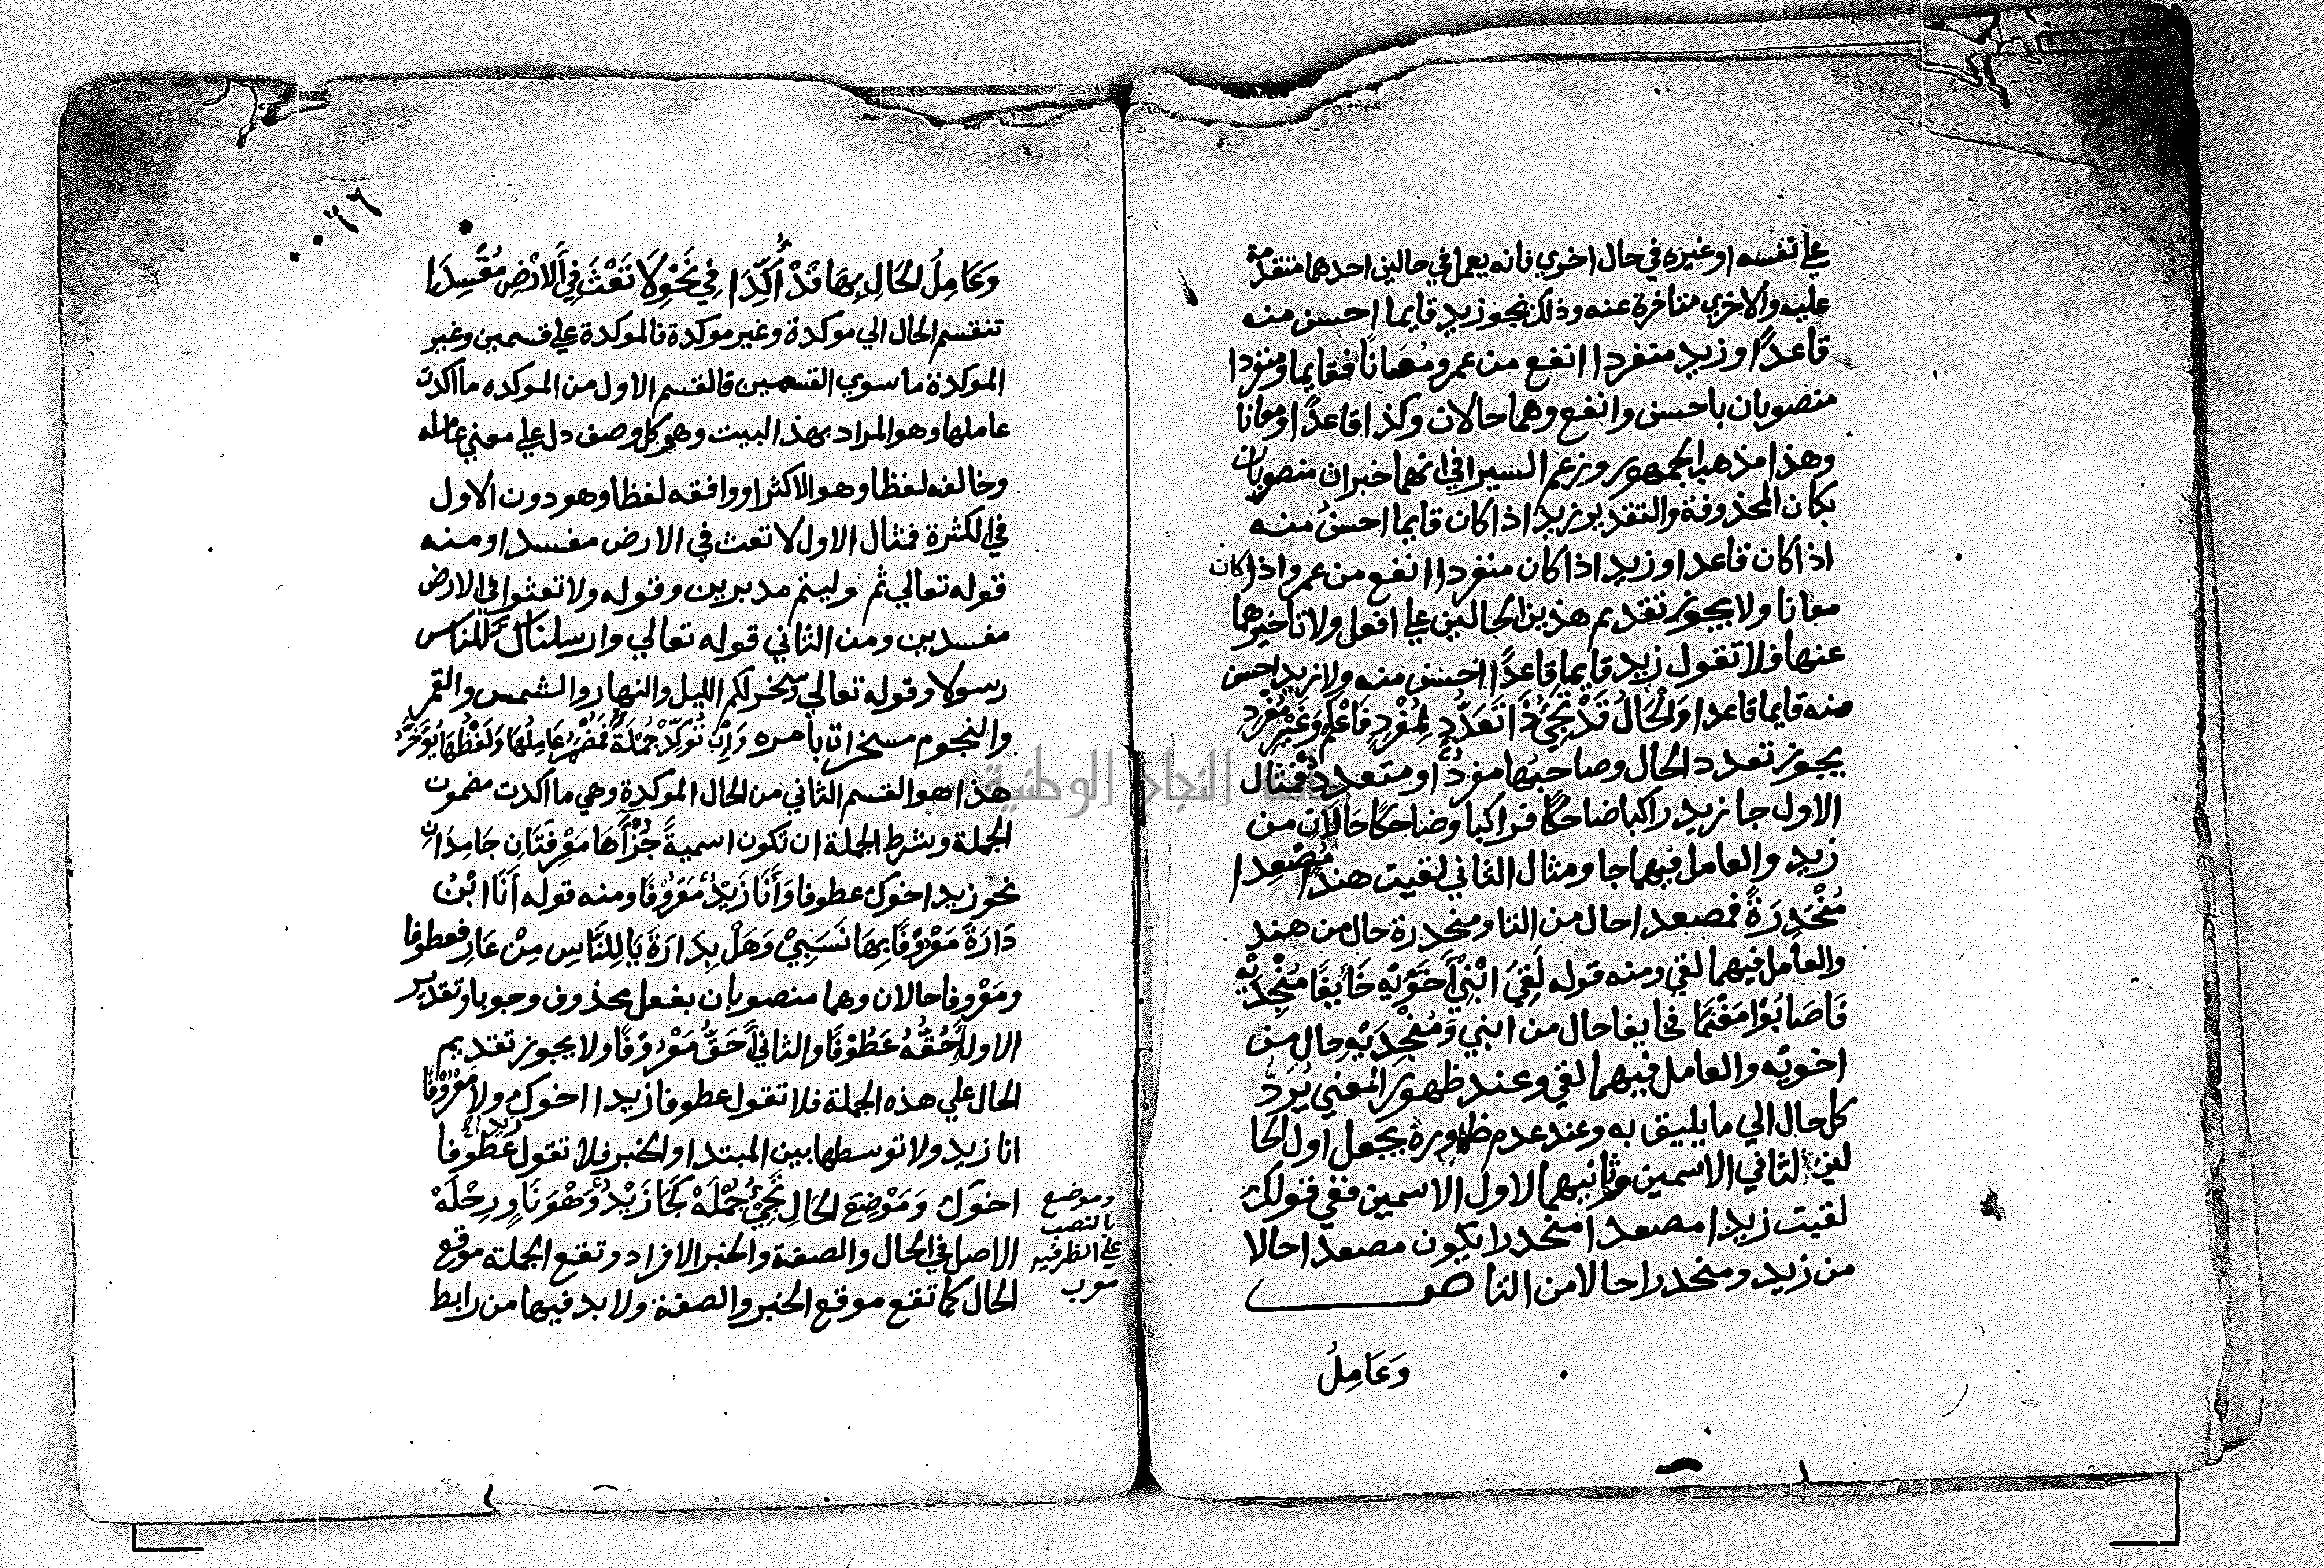 علي نفسه او غيره في حال اخري فانه يعمل في حالين احدهما متقدمة
عليه والاخري متاخرة عنه وذلك نحو زيد قايما احسن منه
قاعدًا وزيد منفردا انفع من عمرو مُعَانًا فقايما ومنفردا
منصوبان باحسن وانفع وهما حالان وكذا قاعدًا ومعانًا
وهذا مذهب الجمهور وزعم السيرافي انهما خبران منصوبان
بكان المحذوفة والتقدير زيد اذا كان قايما احسنُ منه
اذا كان قاعدا وزيد اذا كان منفردا انفع من عمرو اذا كان
معانا ولا يجوز تقديم هذين الحالين علي افعل ولا تاخيرهما
عنها فلا تقول زيد قايما قاعدًا احسن منه ولا زيد احسن
منه قايما قاعدا وَالْحَالُ قَدْ يَجِيُ ذَا تَعَدُّدِ لِمُفْرَدٍ فَاعْلَمْ وَغَيْرِ مُفْرَدِ
يجوز تعدد الحال وصاحبُها مفردٌ او متعددٌ فمثال
الاول جا زيد راكبا ضاحكًا فراكبا وضاحكًا حَالَانِ من
زيد والعامل فيهما جا ومثال الثاني لقيت هندا مُصْعِدا
مُنْحَدِرَةً فمصعدا حال من التا ومنحدرة حال من هند
والعامل فيهما لقي ومنه قوله لَقِيَ ابْنِيْ أَخَوَيْهِ خَائِفًا مُنْجِدَيْهِ
فَاصَابُوْا مَغْنَمَا فخايفا حال من ابني وَمُنْجِدَيْهِ حال من
اخويه والعامل فيهما لقي وعند ظهور المعني يُرَدُّ
كل حال الي ما يليق به وعند عدم ظهوره يجعل اول الحا
لين لثاني الاسمين وثانيهما لاول الاسمين ففي قولك
لقيت زيدا مصعدا منحدرا يكون مصعدا حالا
من زيد ومنحدرا حالا من التا ص
وَعَامِلُ
٠٦٦
وَعَامِلُ الحَالِ بِهَا قَدْ أُكِّدَا فِي نَحْوِ لَا تَعْثَ فِي الَارْضِ مُفْسِدَا
تنقسم الحال الي موكدة وغير موكدة فالموكدة علي قسمين وغير
الموكدة ما سوي القسمين فالقسم الاول من الموكده ما اكدت
عاملها وهو المراد بهذا البيت وهو كل وصف دل علي معني عامله
وخالفه لفظا وهو الاكثر او وافقه لفظا وهو دون الاول
في الكثرة فمثال الاول لا تعث في الارض مفسدا ومنه
قوله تعالي ثم وليتم مدبرين وقوله ولا تعثوا في الارض
مفسدين ومن الثاني قوله تعالي وارسلناك للناس
رسولا وقوله تعالي وسخر لكم الليل والنهار والشمس والقمر
والنجوم مسخرات بامره وَإِنْ تُوَكِّدْ جُمْلَةً فَمُضْمَرُ عَامِلُهَا وَلَفْظُهَا يُوَخَّرُ
هذا هو القسم الثاني من الحال الموكدة وهي ما اكدت مضمون
الجملة وشرط الجملة ان تكون اسميةً جُزْأَهَا مَعْرِفَتَانِ جَامِدَانِ
نحو زيد اخوك عطوفا وَأَنَا زَيْدٌ مَعْرُوفًا ومنه قوله أَنَا ابْنُ
دَارَةَ مَعْرُوْفًا بِهَا نَسَبِيْ وَهَلْ بِدَارَةَ يَا لِلنَّاسِ مِنْ عَارِ فعطوفا
ومَعْرُوفا حالان وهما منصوبان بفعل محذوف وجوبا وتقدير
الاول أَحُقُّهُ عَطُوْفًا والثاني أُحَقُّ مَعْرُوْفًا ولا يجوز تقديم
الحال علي هذه الجملة فلا تقول عطوفا زيدا اخوك ولا مَعْرُوْفًا
انا زيد ولا توسطها بين المبتدا والخبر فلا تقول زيد عطوفا
اخوك وَمَوْضِعَ الحَالِ تَجِيُ جُمْلَهْ كَجَا زَيْدٌ وَهْوَ نَاوٍ رِحْلَهْ
الاصل في الحال والصفة والخبر الافراد وتقع الجملة موقع
الحال كما تقع موقع الخبر والصفة ولا بد فيها من رابط
وموضع
بالنصب
علي الظرفيه